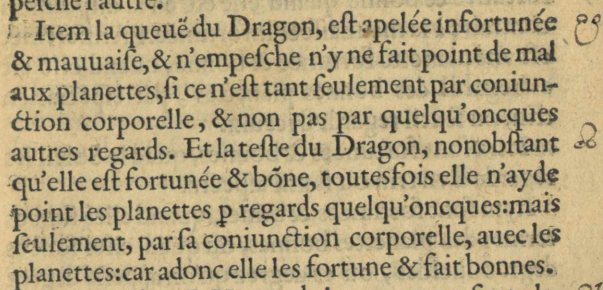 Item la queuë du Dragon, eſt apelée infortunée
& mauuaiſe, & n'empeſche n'y ne fait point de mal
aux planettes, ſi ce n'eſt tant ſeulement par coniun-
ction corporelle, & non pas par quelqu'oncques
autres regards. Et la teſte du Dragon, nonobſtant
qu'elle eſt fortunée & bõne, toutesfois elle n'ayde
point les planettes ꝑ regards quelqu'oncques:mais
ſeulement, par ſa coniunction corporelle, auec les
planettes:car adonc elle les fortune & fait bonnes.